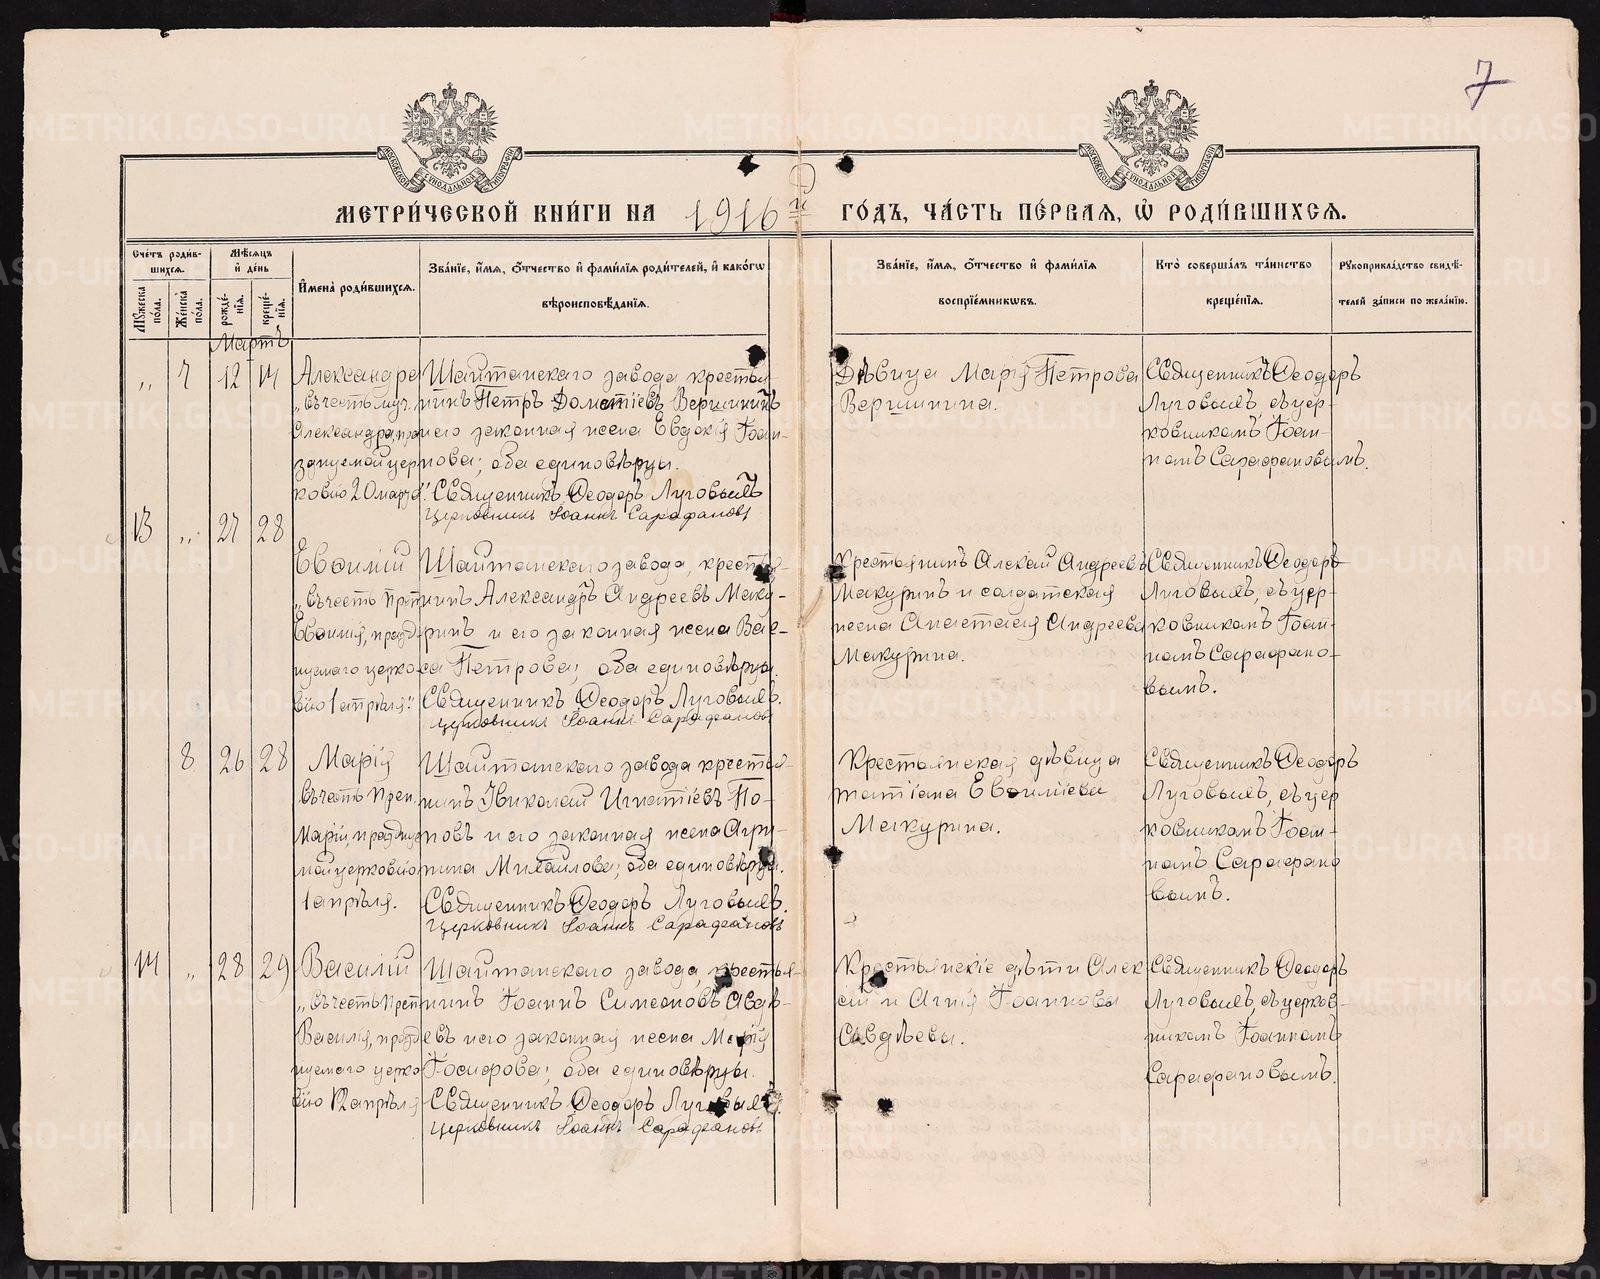 7
МЕТРИ́ЧЕСКОЙ КНИ́ГИ НА 1916й ГО́ДЪ, ЧА́СТЬ ПЕ́РВАЯ, Ѽ РОДИ́ВШИХСЯ.
Сче́тъ роди́в-
шихся.
Мꙋ́жеска по́ла.
Же́нска по́ла.
Мѣ́сяцъ
и҆ де́нь
рожде́-
нїя.
креще́-
нїя.
И҆мена̀ роди́вшихся.
Зва́нїе, и҆́мя, ѻ҆́тчество и҆ фами́лїя роди́телей, и҆ како́гѡ
вѣроисповѣ́данїя.
Зва́нїе, и҆́мя, ѻ҆́тчество и҆ фами́лїя
воспрїе́мникѡвъ.
Кто̀ соверша́лъ та́инство
креще́нїя.
Рꙋкоприкла́дство свидѣ́-
телей за́писи по жела́нїю.
Мартъ
„ 7 12 14
Александра
„въ честь муч.
Александра, пра
зднуемой цер
ковію 20 марта"
Шайтанскаго завода крестья-
нинъ Петръ Дометіевъ Вершининъ
и его законная жена Евдокія Іоан-
нова; оба единовѣрцы.
Священникъ Ѳеодоръ Луговыхъ
Церковникъ Іоаннъ Сарафановъ
Дѣвица Марія Петрова
Вершинина.
Священникъ Ѳеодоръ
Луговыхъ, съ цер-
ковникомъ Іоан-
номъ Сарафановымъ.
13 „ 27 28
Евѳимій
„въ честь Преп
Евѳимія, празд
нуемаго церко
вію 1 апрѣля"
Шайтанскаго завода, крестья-
нинъ Александръ Андреевъ Маку-
ринъ и его законная жена Вас-
са Петрова; оба единовѣрцы.
Священникъ Ѳеодоръ Луговыхъ.
Церковникъ Іоаннъ Сарафановъ
Крестьянинъ Алексій Андреевъ
Макуринъ и солдатская
жена Анастасія Андреева
Макурина.
Священникъ Ѳеодоръ
Луговыхъ, съ цер-
ковникомъ Іоан-
номъ Сарафано-
вымъ.
8 26 28
Марія
въ честь Преп.
Маріи, праздну
мой церковію
1 апрѣля.
Шайтанскаго завода крестья-
нинъ Николай Игнатіевъ По-
повъ и его законная жена Агри-
пина Михайлова; оба единовѣрцы.
Священникъ Ѳеодоръ Луговыхъ.
Церковникъ Іоаннъ Сарафановъ
Крестьянская дѣвица
Татіана Евѳиміева
Макурина.
Священникъ Ѳеодоръ
Луговыхъ, съ цер
ковникомъ Іоан-
номъ Сарафано
вымъ.
14 „ 28 29
Василій
„въ честь Преп
Василія, празд
нуемаго церко
вію 12 апрѣля
Шайтанскаго завода, крестья-
нинъ Іоаннъ Симеоновъ Авдѣ-
евъ и его законная жена Марія
Іосифова; оба единовѣрцы.
Священникъ Ѳеодоръ Луговыхъ.
Церковникъ Іоаннъ Сарафановъ
Крестьянскіе дѣти Алек
сій и Агнія Іоанновы
Авдѣевы.
Священникъ Ѳеодоръ
Луговыхъ, съ церков-
никомъ Іоанномъ
Сарафановымъ.
METRIKI.GASO-URAL.RU